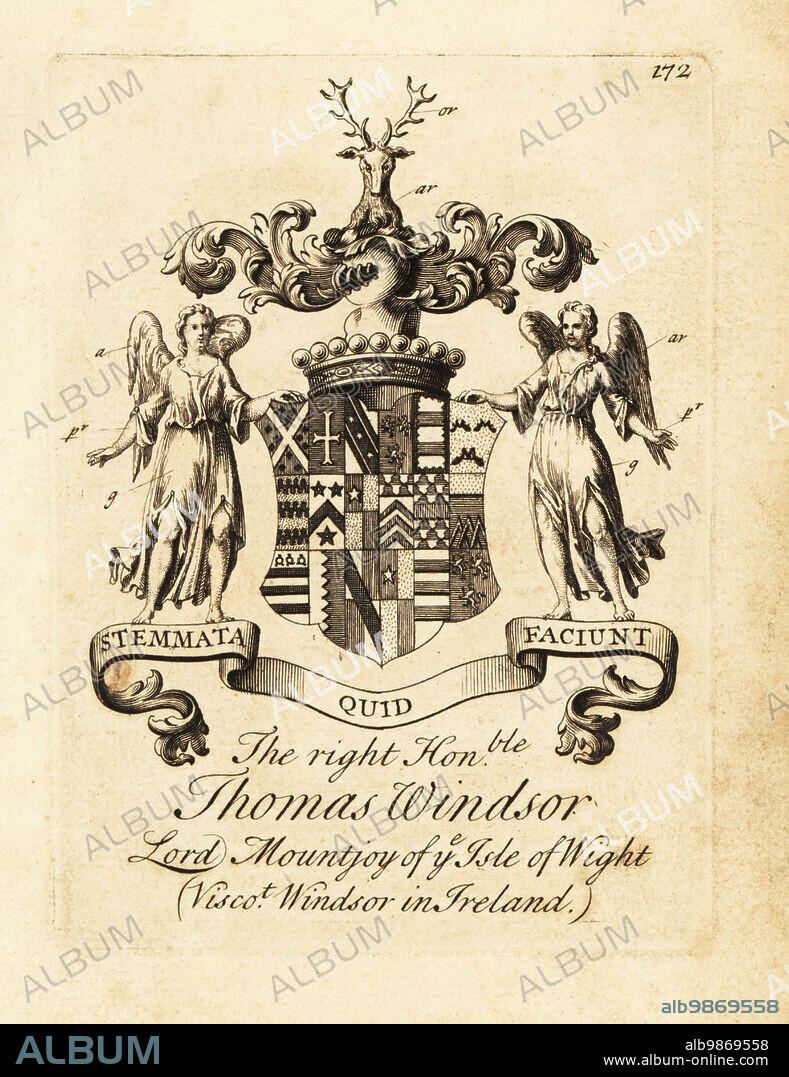 172
or
ar
a
ar
pr
pr
g
g
STEMMATA
FACIUNT
QUID
The right Hon.ble
Thomas Windsor
Lord Mountjoy of ye Isle of Wight
(Viscot. Windsor in Ireland.)
alb9869558
ALBUM
alb9869558
www.album-online.com